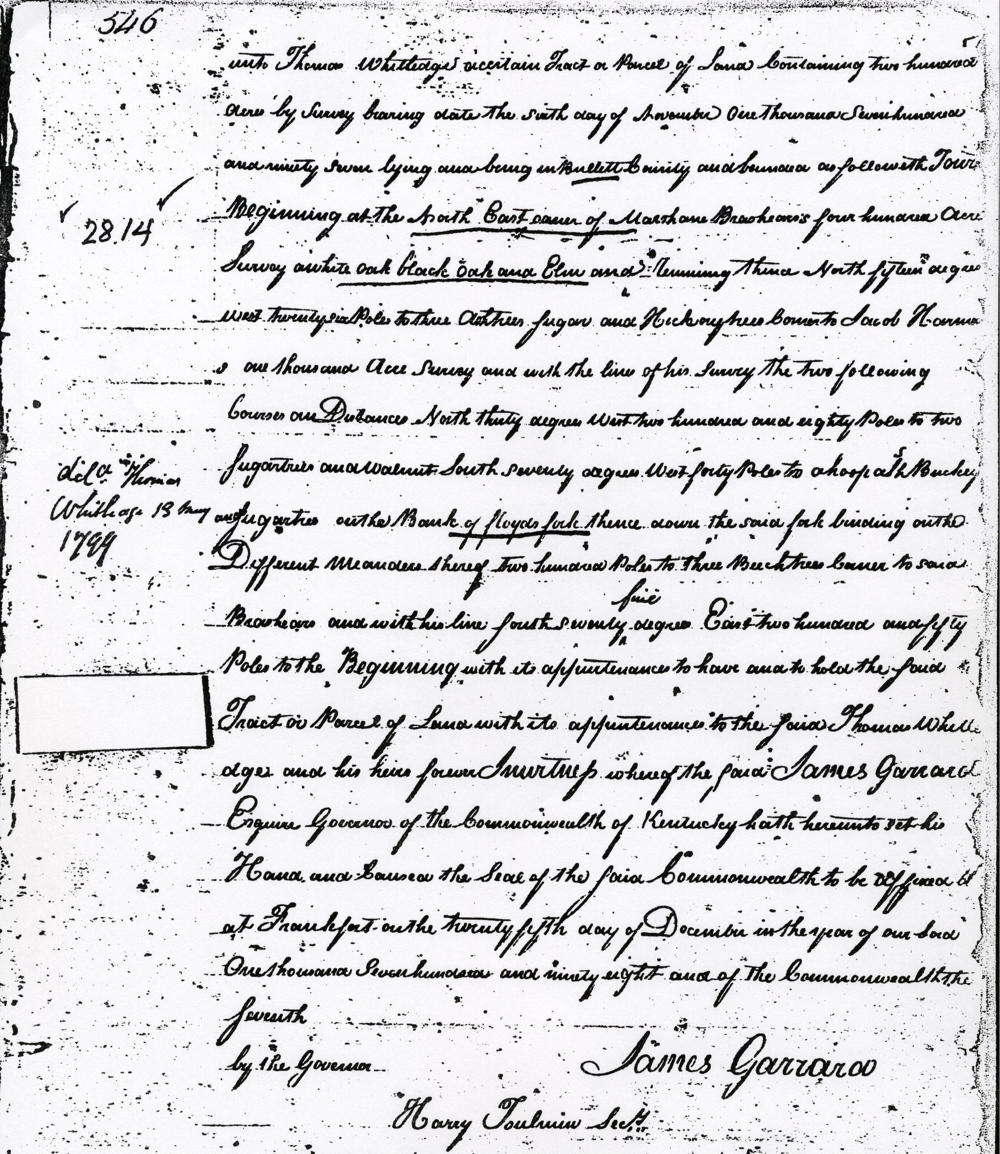 546
unto Thomas Whitledge a certain Tract or Parcel of Land Containing two hundred
acres by Survey bearing date the sixth day of November One thousand Seven hundred
and ninety seven lying and being in Bullett County and bounded as followeth Towit
Beginning at the North East corner of Marshane Brashears's four hundred Acre
2814
Survey a white oak black oak and Elm and running thence North fifteen degrees
west twenty six Poles to three Ashtrees sugar and Hickory trees Corner to Jacob Harma
s one thousand Acre Survey and with the lines of his Survey the two following
Courses and Distances North thirty degrees West two hundred and eighty Poles to two
Sugartrees and walnut South seventy degrees West forty Poles to a hoop ash Buckey
del.d Thomas
Whitledge 13 May
1799
and Sugartree on the Bank of floyds fork thence down the said fork binding on the
Different Meanders thereof two hundred Poles to three Beech trees Corner to said
Brashears and with his line South seventy five degrees East two hundred and fifty
Poles to the Beginning with its appurtenances to have and to hold the said
Tract or Parcel of Land with its appurtenances to the said Thomas Whitle
dge and his heirs forever In witness whereof the said James Garrard
Esquire Governor of the Commonwealth of Kentucky hath hereunto set his
Hand and Caused the Seal of the said Commonwealth to be Affixed
at Frankfort on the twenty fifth day of December in the year of our Lord
One thousand Seven hundred and ninety eight and of the Commonwealth the
Seventh
by the Governor James Garrard
Harry Toulmin Secy.